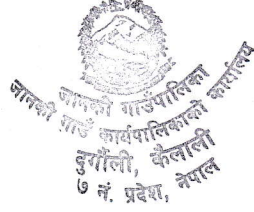 जानकी गाउँपालिका
गाउँ कार्यपालिकाको कार्यालय
दुर्गौली, कैलाली
७ नं. प्रदेश, नेपाल